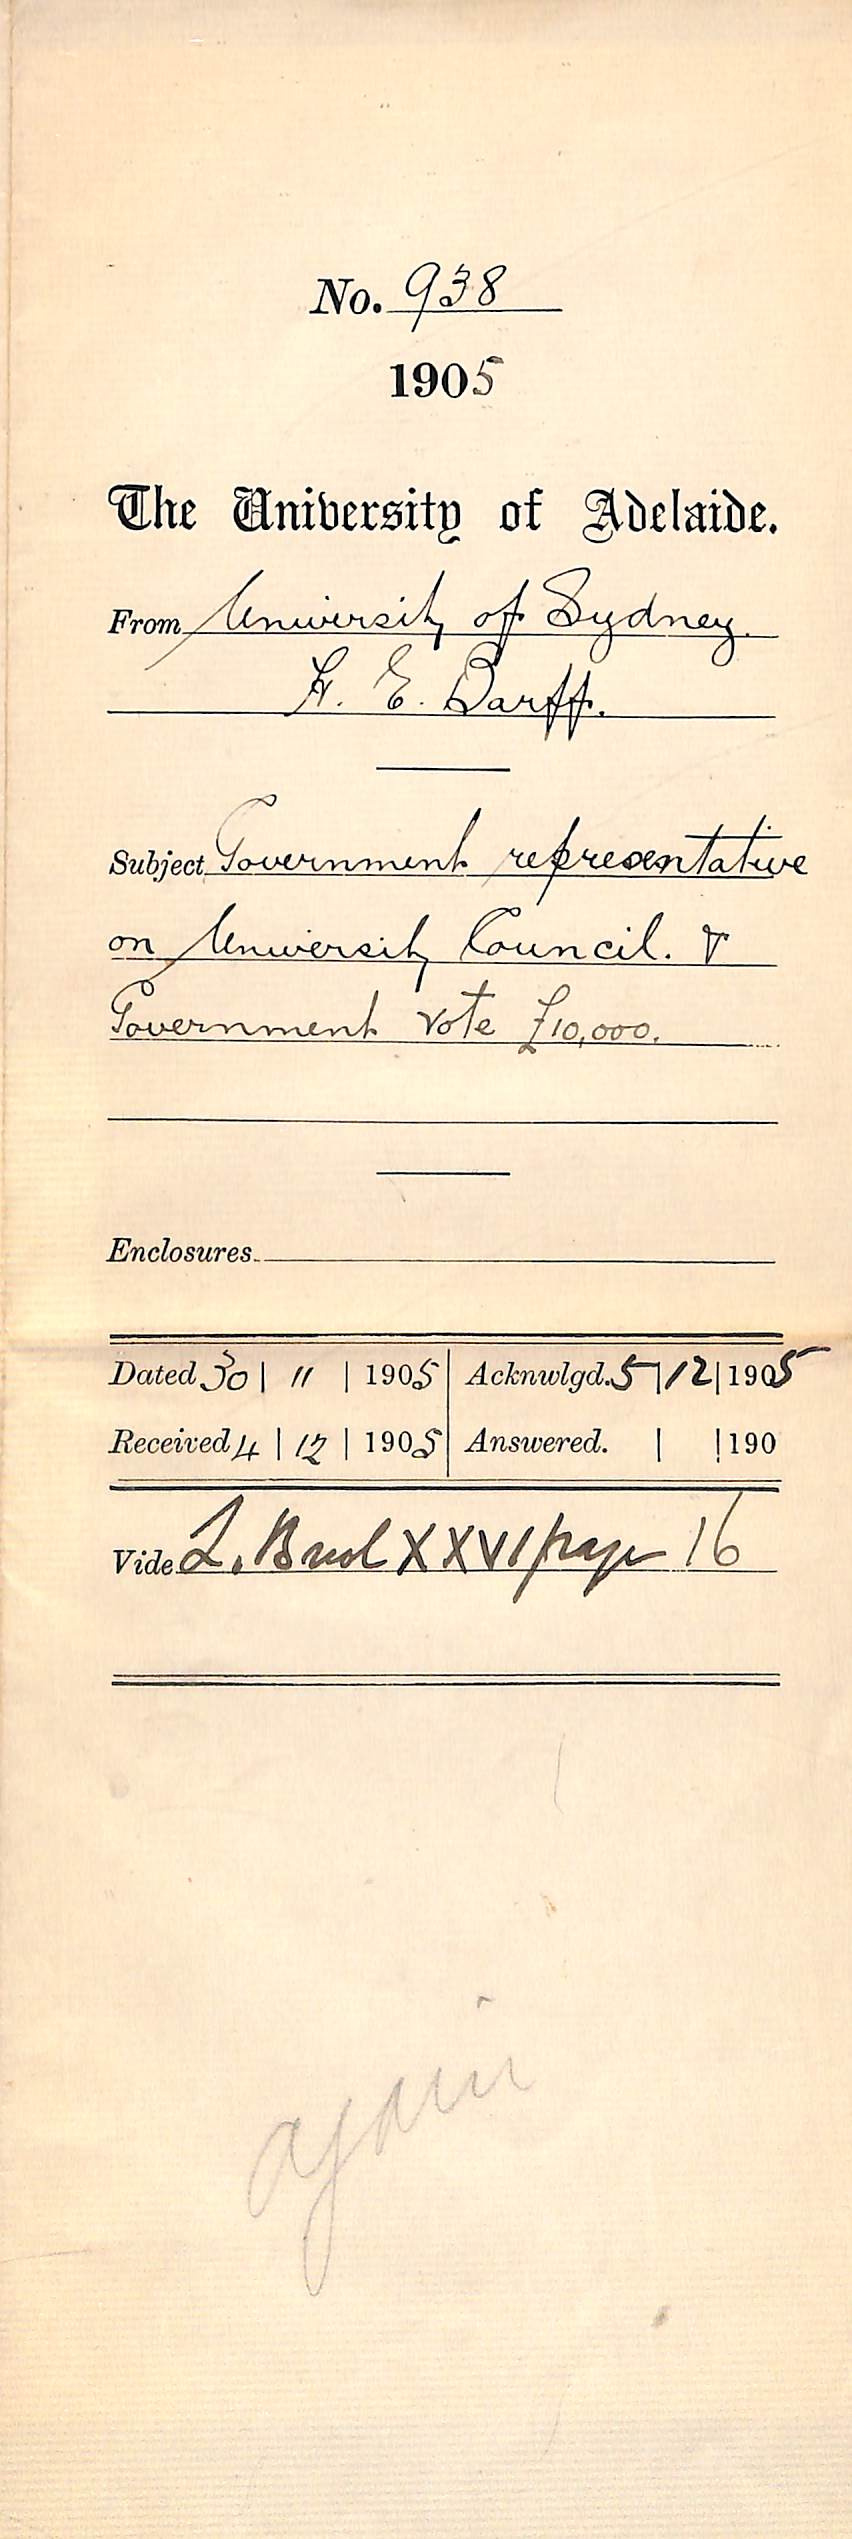 No. 938
1905
The University of Adelaide.
From University of Sydney.
H. E. Barff.
Subject Government representative
on University Council. &
Government vote £10,000.
Enclosures
Dated 30 | 11 | 1905 | Acknwlgd. 5 | 12 | 1905
Received 4 | 12 | 1905 | Answered. | | 190
Vide L. B vol XXVI page 16
again